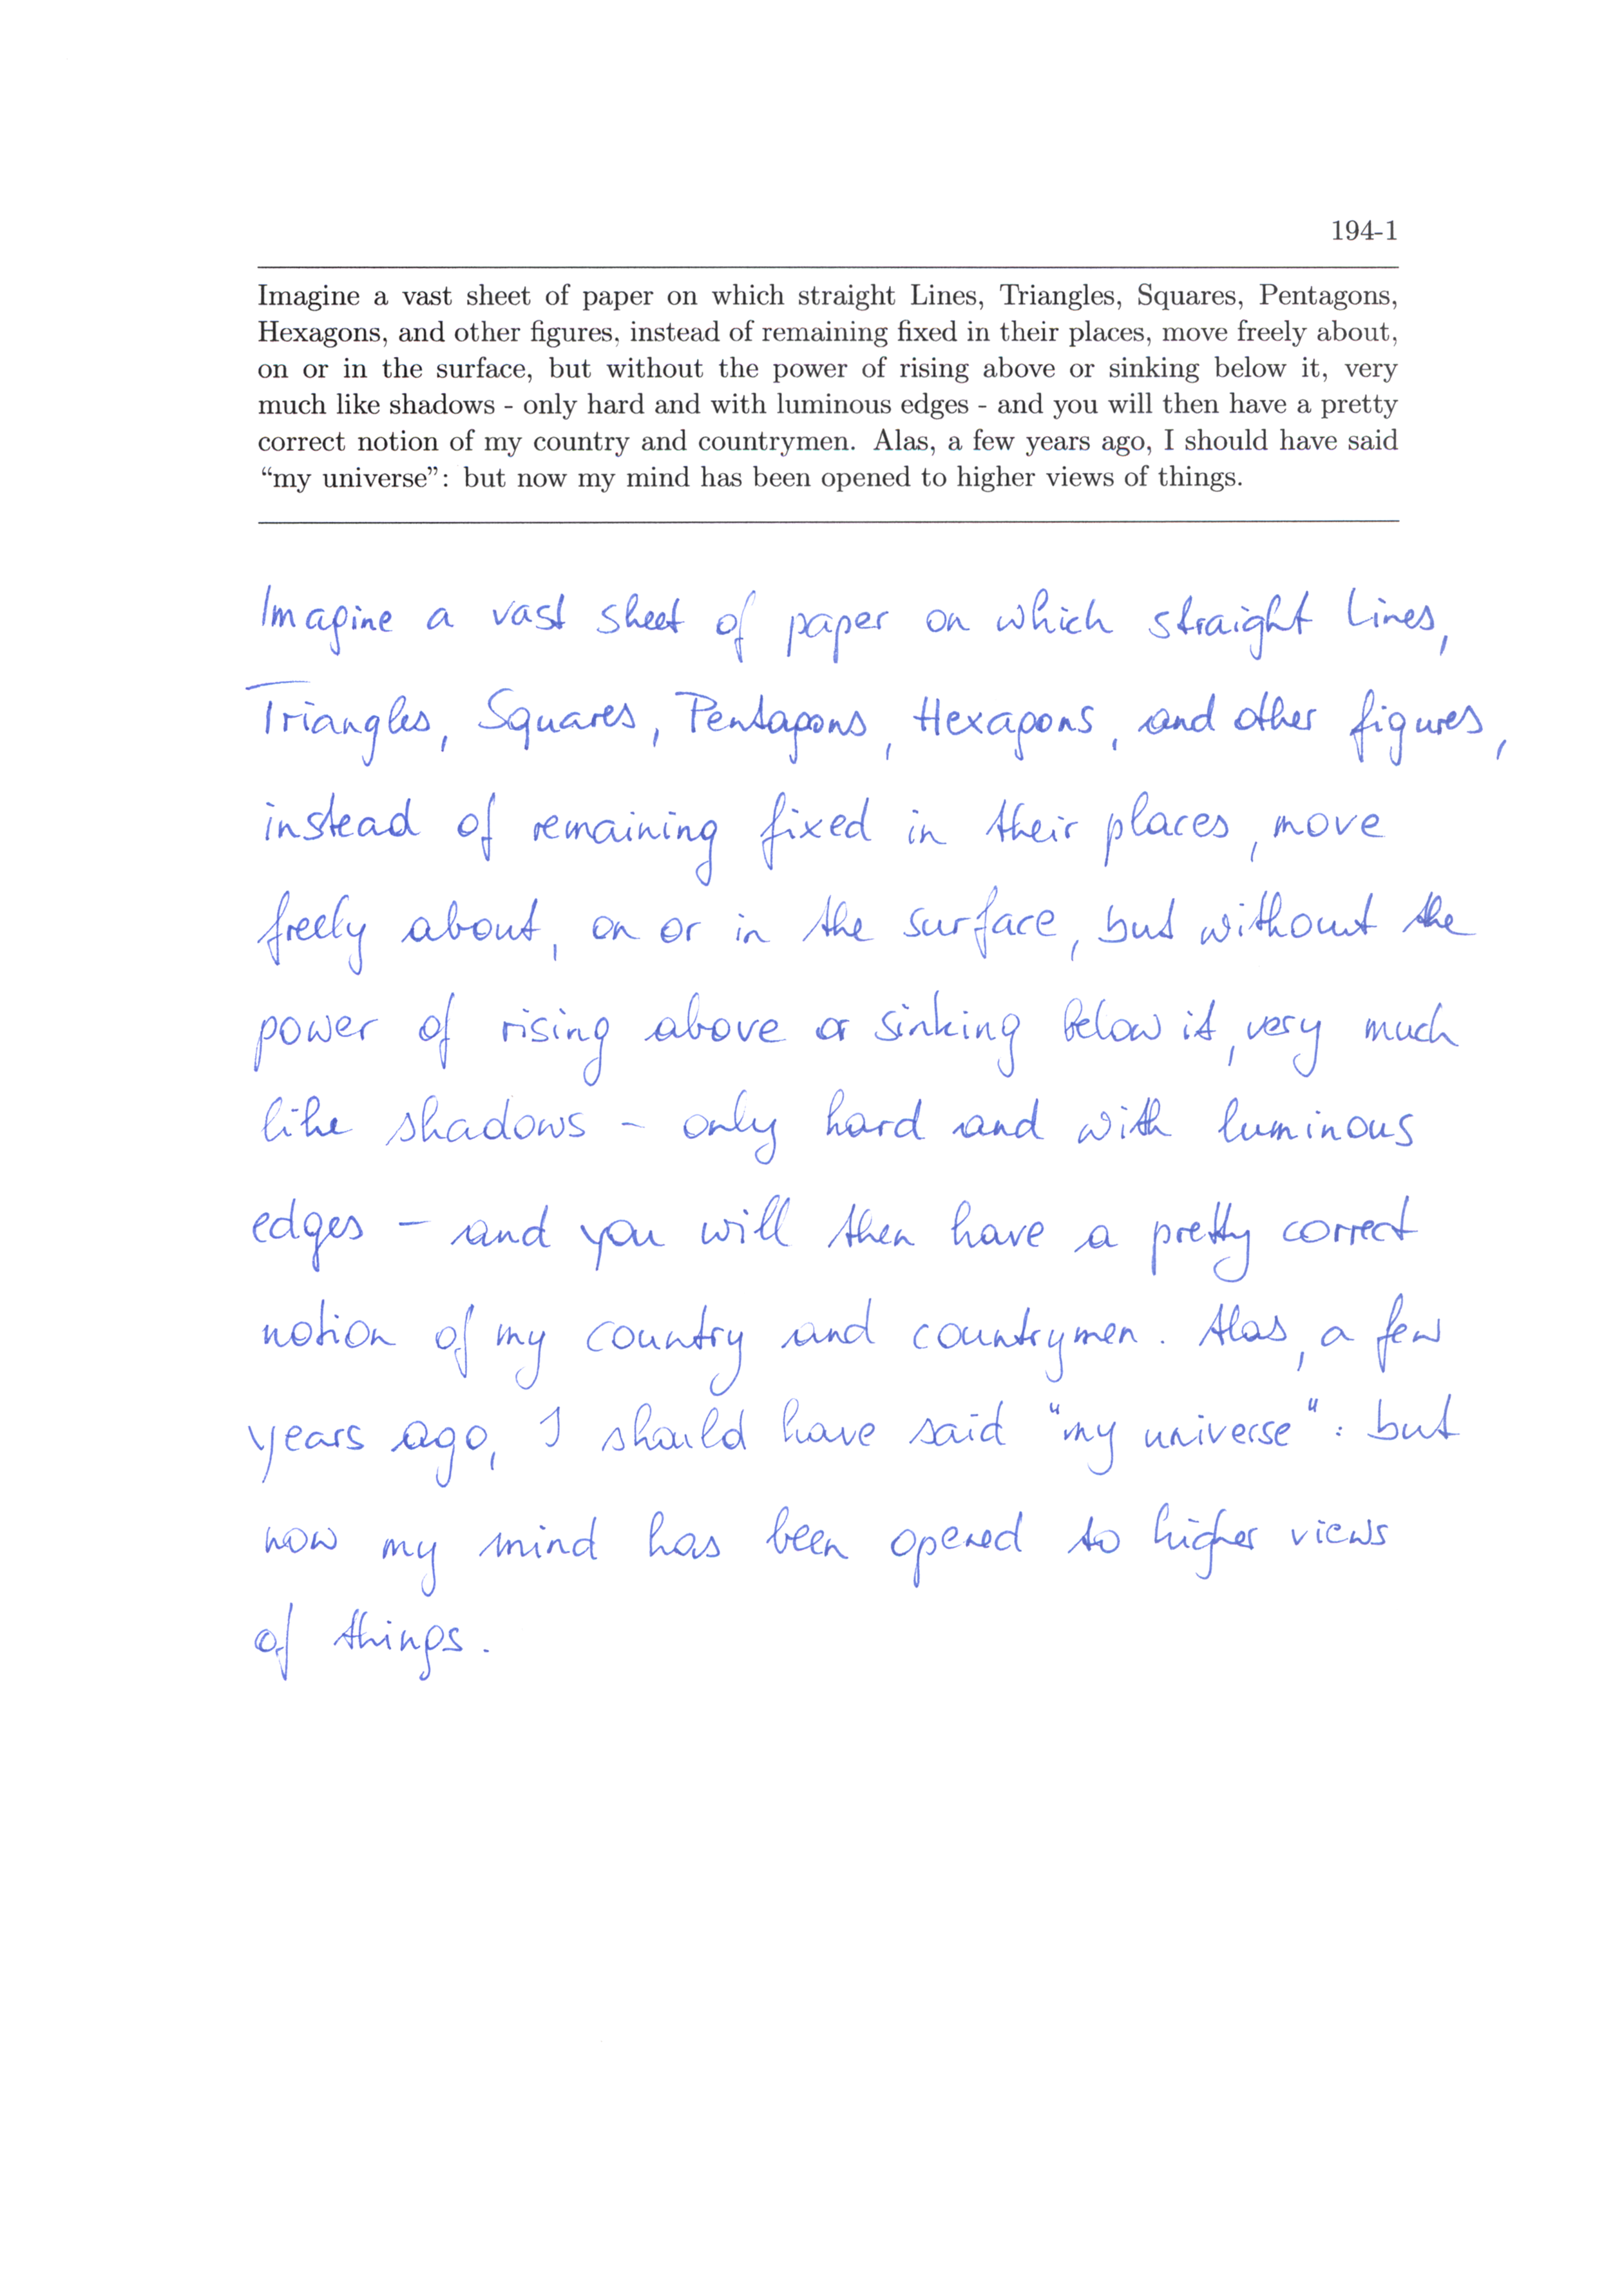 194-1
Imagine a vast sheet of paper on which straight Lines, Triangles, Squares, Pentagons,
Hexagons, and other figures, instead of remaining fixed in their places, move freely about,
on or in the surface, but without the power of rising above or sinking below it, very
much like shadows - only hard and with luminous edges - and you will then have a pretty
correct notion of my country and countrymen. Alas, a few years ago, I should have said
“my universe”: but now my mind has been opened to higher views of things.
Imagine a vast sheet of paper on which straight Lines,
Triangles, Squares, Pentagons, Hexagons, and other figures,
instead of remaining fixed in their places, move
freely about, on or in the surface, but without the
power of rising above or sinking below it, very much
like shadows - only hard and with luminous
edges - and you will then have a pretty correct
notion of my country and countrymen. Alas, a few
years ago, I should have said "my universe": but
now my mind has been opened to higher views
of things.